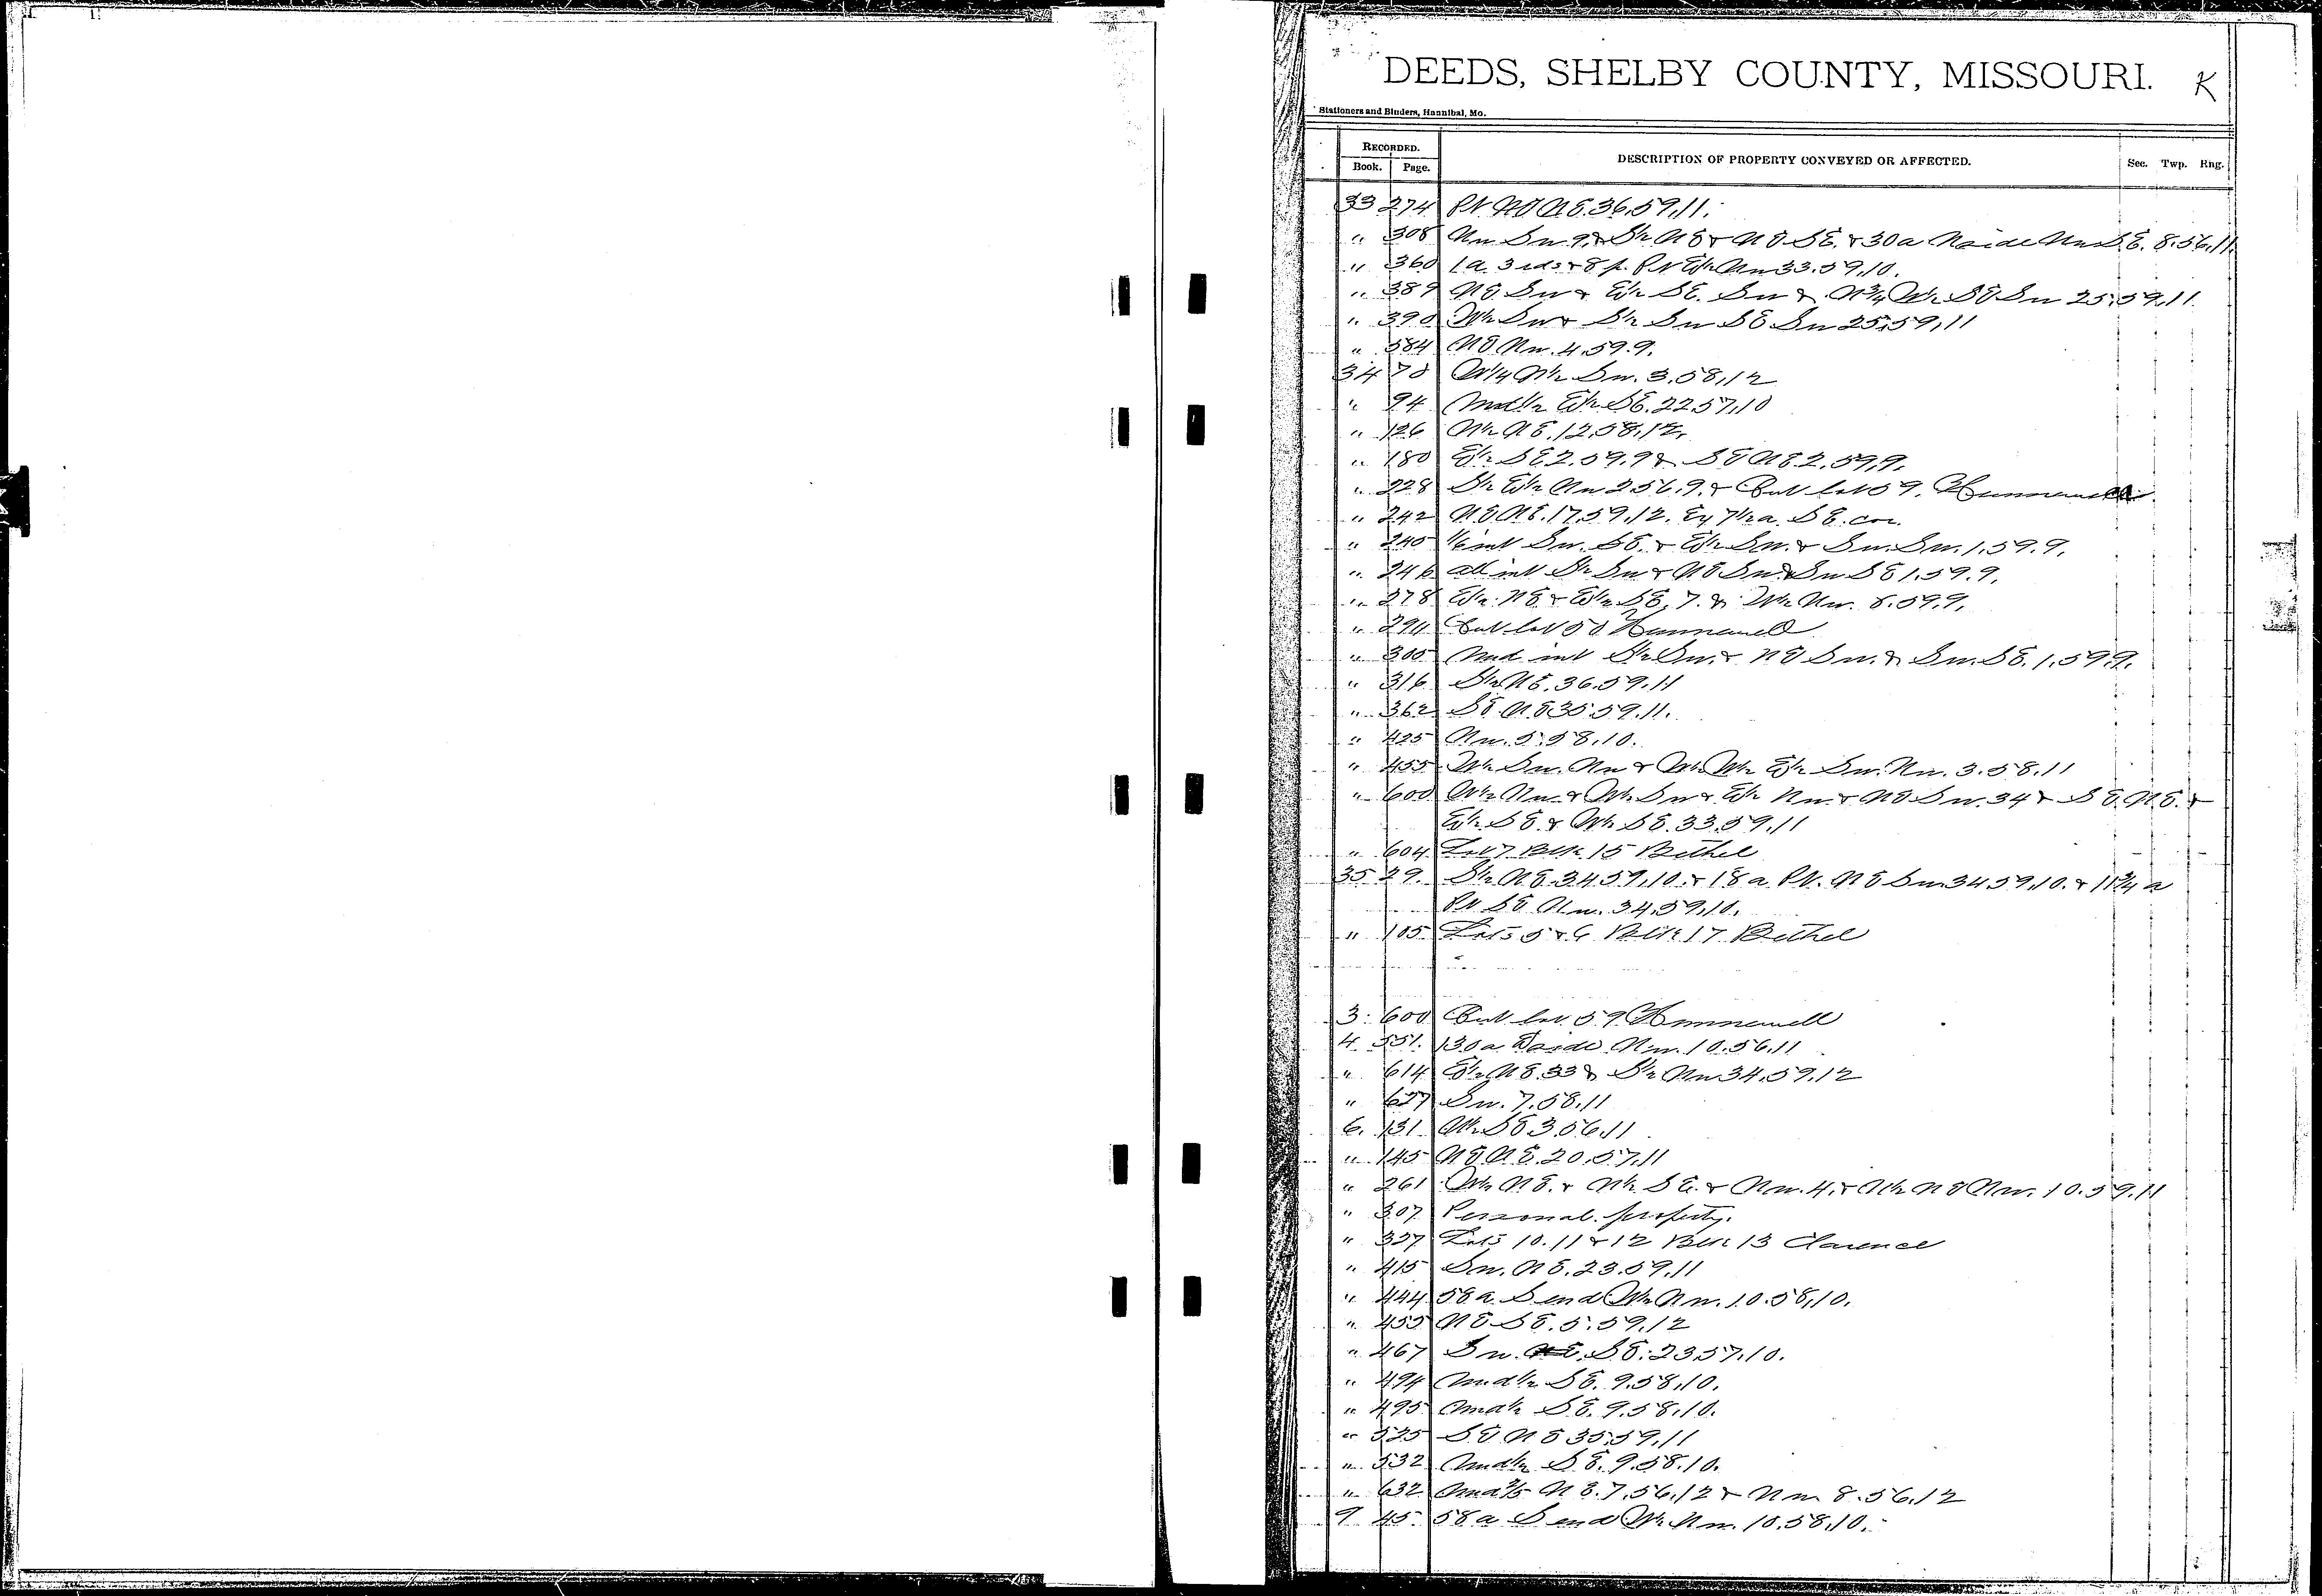 DEEDS, SHELBY COUNTY, MISSOURI. K
Stationers and Binders, Hannibal, Mo.
RECORDED.
Book. Page. DESCRIPTION OF PROPERTY CONVEYED OR AFFECTED. Sec. Twp. Rng.
33 274 Pt NE NE. 36.59.11.
" 308 Nw Sw 9, & S½ NE & NE SE. & 30a N side Nw S.E. 8.56.11.
" 360 1a. 3 rds & 8 p. Pt E½ Nw 33.59.10.
" 389 NE. Sw & E½ SE. Sw & N¾ W½ SE Sw 25.59.11.
" 390 W½ Sw & S½ Sw SE Sw 25.59.11
" 584 NE Nw. 4.59.9.
34 70 N¼ N½ Sw. 3.58.12
" 94 Und½ E½ SE. 22.57.10
" 126 N½ NE. 12.58.12.
" 180 E½ SE 2.59.9 & SE NE 2.59.9.
" 228 S½ E½ Nw 2.56.9. & Out lot 59. Hunnewell.
" 242 NE NE. 17.59.12. Ex 7½ a. SE. cor.
" 245 1/6 int Sw. SE. & E½ Sw. & Sw. Sw. 1.59.9.
" 246 all int S½ Sw & NE Sw & Sw SE 1.59.9.
" 278 E½ NE & E½ SE, 7. & W½ Nw. 8.59.9.
" 291 Out lot 50 Hunnewell
" 305 Und int S½ Sw. & NE Sw. & Sw. SE. 1.59.9.
" 316 S½ NE. 36.59.11
" 362 SE NE 35.59.11.
" 425 Nw. 5.58.10.
" 455 W½ Sw. Nw & W½ W½ E½ Sw. Nw. 3.58.11
" 600 W½ Nw. & W½ Sw & E½ Nw. & NE Sw. 34 & SE. NE. &
E½ SE. & W½ SE. 33.59.11
" 604 Lot 7 Blk 15 Bethel
35 29. S½ NE 34.59.10. & 18a Pt. NE Sw 34.59.10. & 11¾ a
Pt SE Nw. 34.59.10.
" 105 Lots 5 & 6 Blk 17 Bethel
3. 600 Out lot 59 Hunnewell
4. 551. 130a E side Nw. 10.56.11
" 614 E½ NE. 33 & S½ Nw 34.59.12
" 627 Sw. 7.58.11
6. 131 W½ SE 3.56.11
" 145 NE NE. 20.57.11
" 261 W½ NE. & N½ SE. & Nw. 4. & W½ NE Nw. 10.59.11
" 307 Personal property.
" 327 Lots 10.11 & 12 Blk 13 Clarence
" 415 Sw. NE. 23.59.11
" 444 58a. S end W½ Nw. 10.58.10.
" 455 NE SE. 5.59.12
" 467 Sw. SE. 23.57.10.
" 494 Und½ SE. 9.58.10.
" 495 Und½ SE. 9.58.10.
" 525 SE NE 35.59.11
" 532 Und½ SE. 9.58.10.
" 632 Und⅖ NE. 7.56.12 & Nw 8.56.12
9 45. 58a S end W½ Nw. 10.58.10.